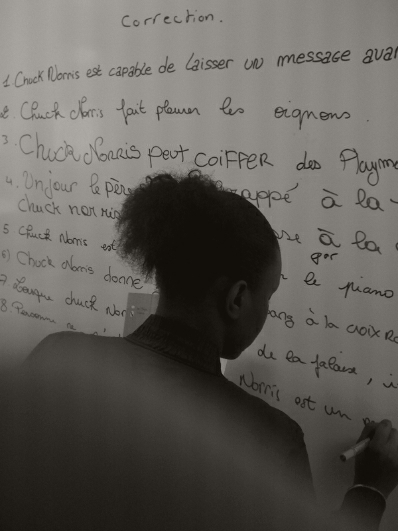 Correction.
1 Chuck Norris est capable de laisser un message avan
2. Chuck Norris fait pleurer les oignons.
3. Chuck Norris peut coiffer des Playm
4. Un jour le père rappé à la
chuck norris
5 Chuck Norris est sse à la
6) Chuck Norris donne le piano
7. Lorsque chuck Nor ang à la croix Ro
8. Personne ne de la falaise,
Norris est un